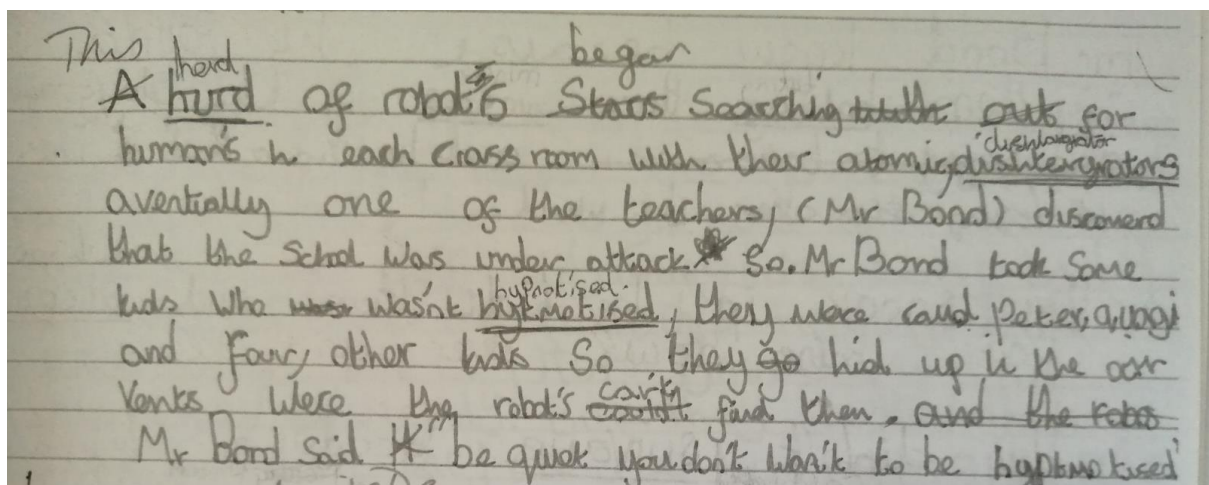 This began
A hurd herd of robot's Stars Searching out for
human's in each Crassroom with their atomic dishtergrators disintargrator
aventially one of the teachers, (Mr Bond) discoverd
that the School was under attack So. Mr Bond took Some
kids who wasn't hyptmotised hypnotised, they were caud Peter, quagi
and four, other kids So they go hid up in the air
Vents Were the robot's couldn't can't find them. and the robo
Mr Bond Said "be quiet you don't wan't to be hyptmotised